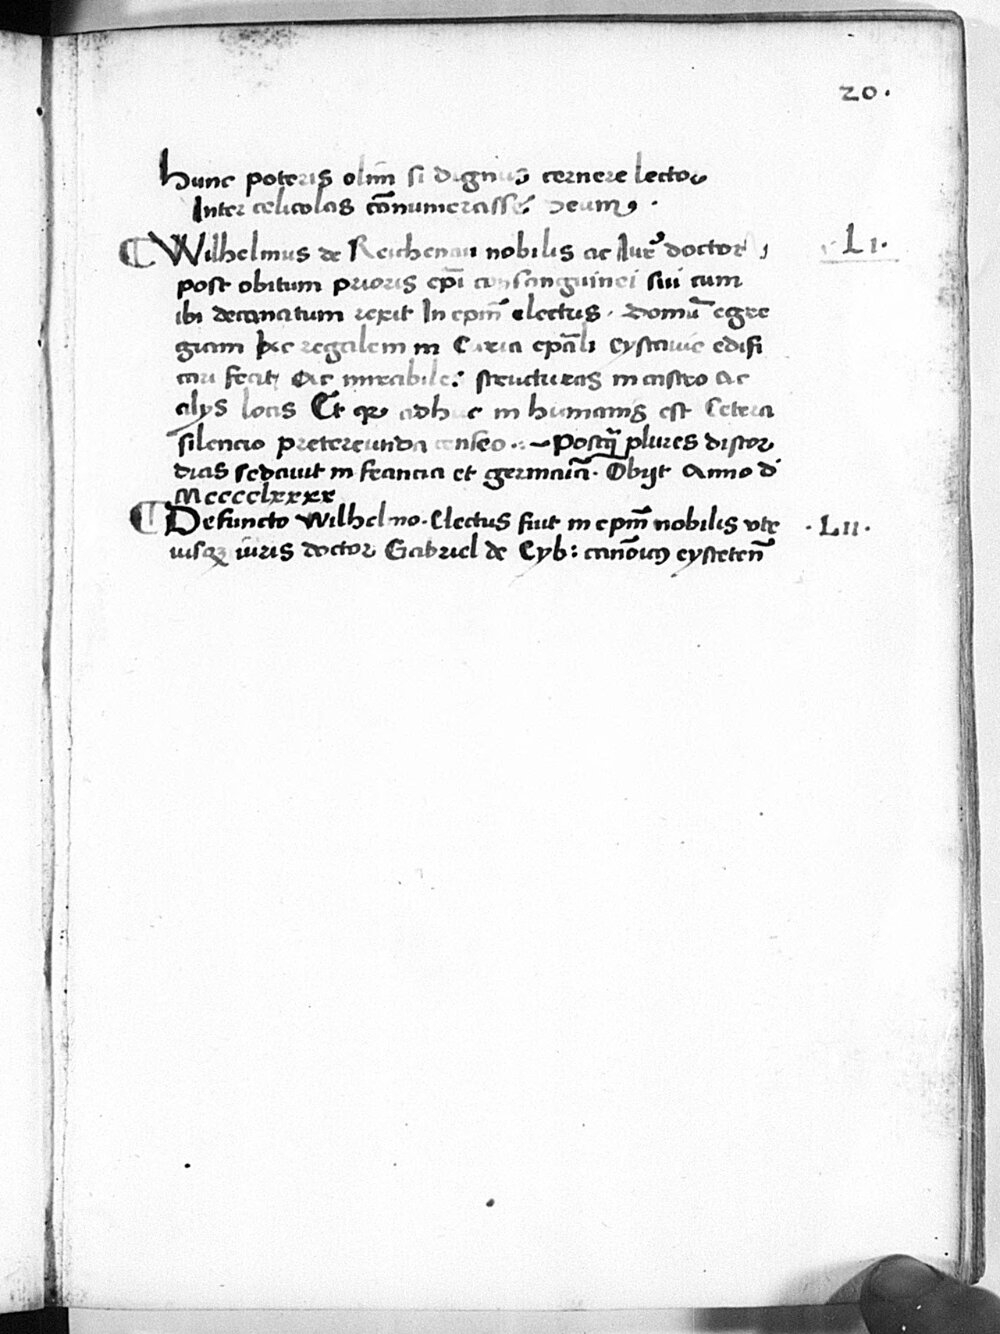 20.
hunc poteris olim̄ si dignus cernere lector
Inter celicolas cōnumerasse Deum
Wilhelmus de Reichenau nobilis ac Iur̄ doctor, LI.
post obitum prioris ep̄i consanguinei sui cum
ibi decanatum rexit In ep̄m electus. domū egre
giam hec regalem in Curia ep̄ali Eystavie edifi
cari fecit ac mirabiles structuras in castro ac
alys locis Et qr adhuc in humanis est Cetera
silencio pretereunda censeo. Postq̄ plures discor
dias sedavit in francia et germaīa. Obijt Anno d̄
Mcccclxxxx
Defuncto Wilhelmo. Electus fuit in ep̄m nobilis vtr .LII.
iusqz iuris doctor Gabriel de Eyb: canōicus eysteteñ